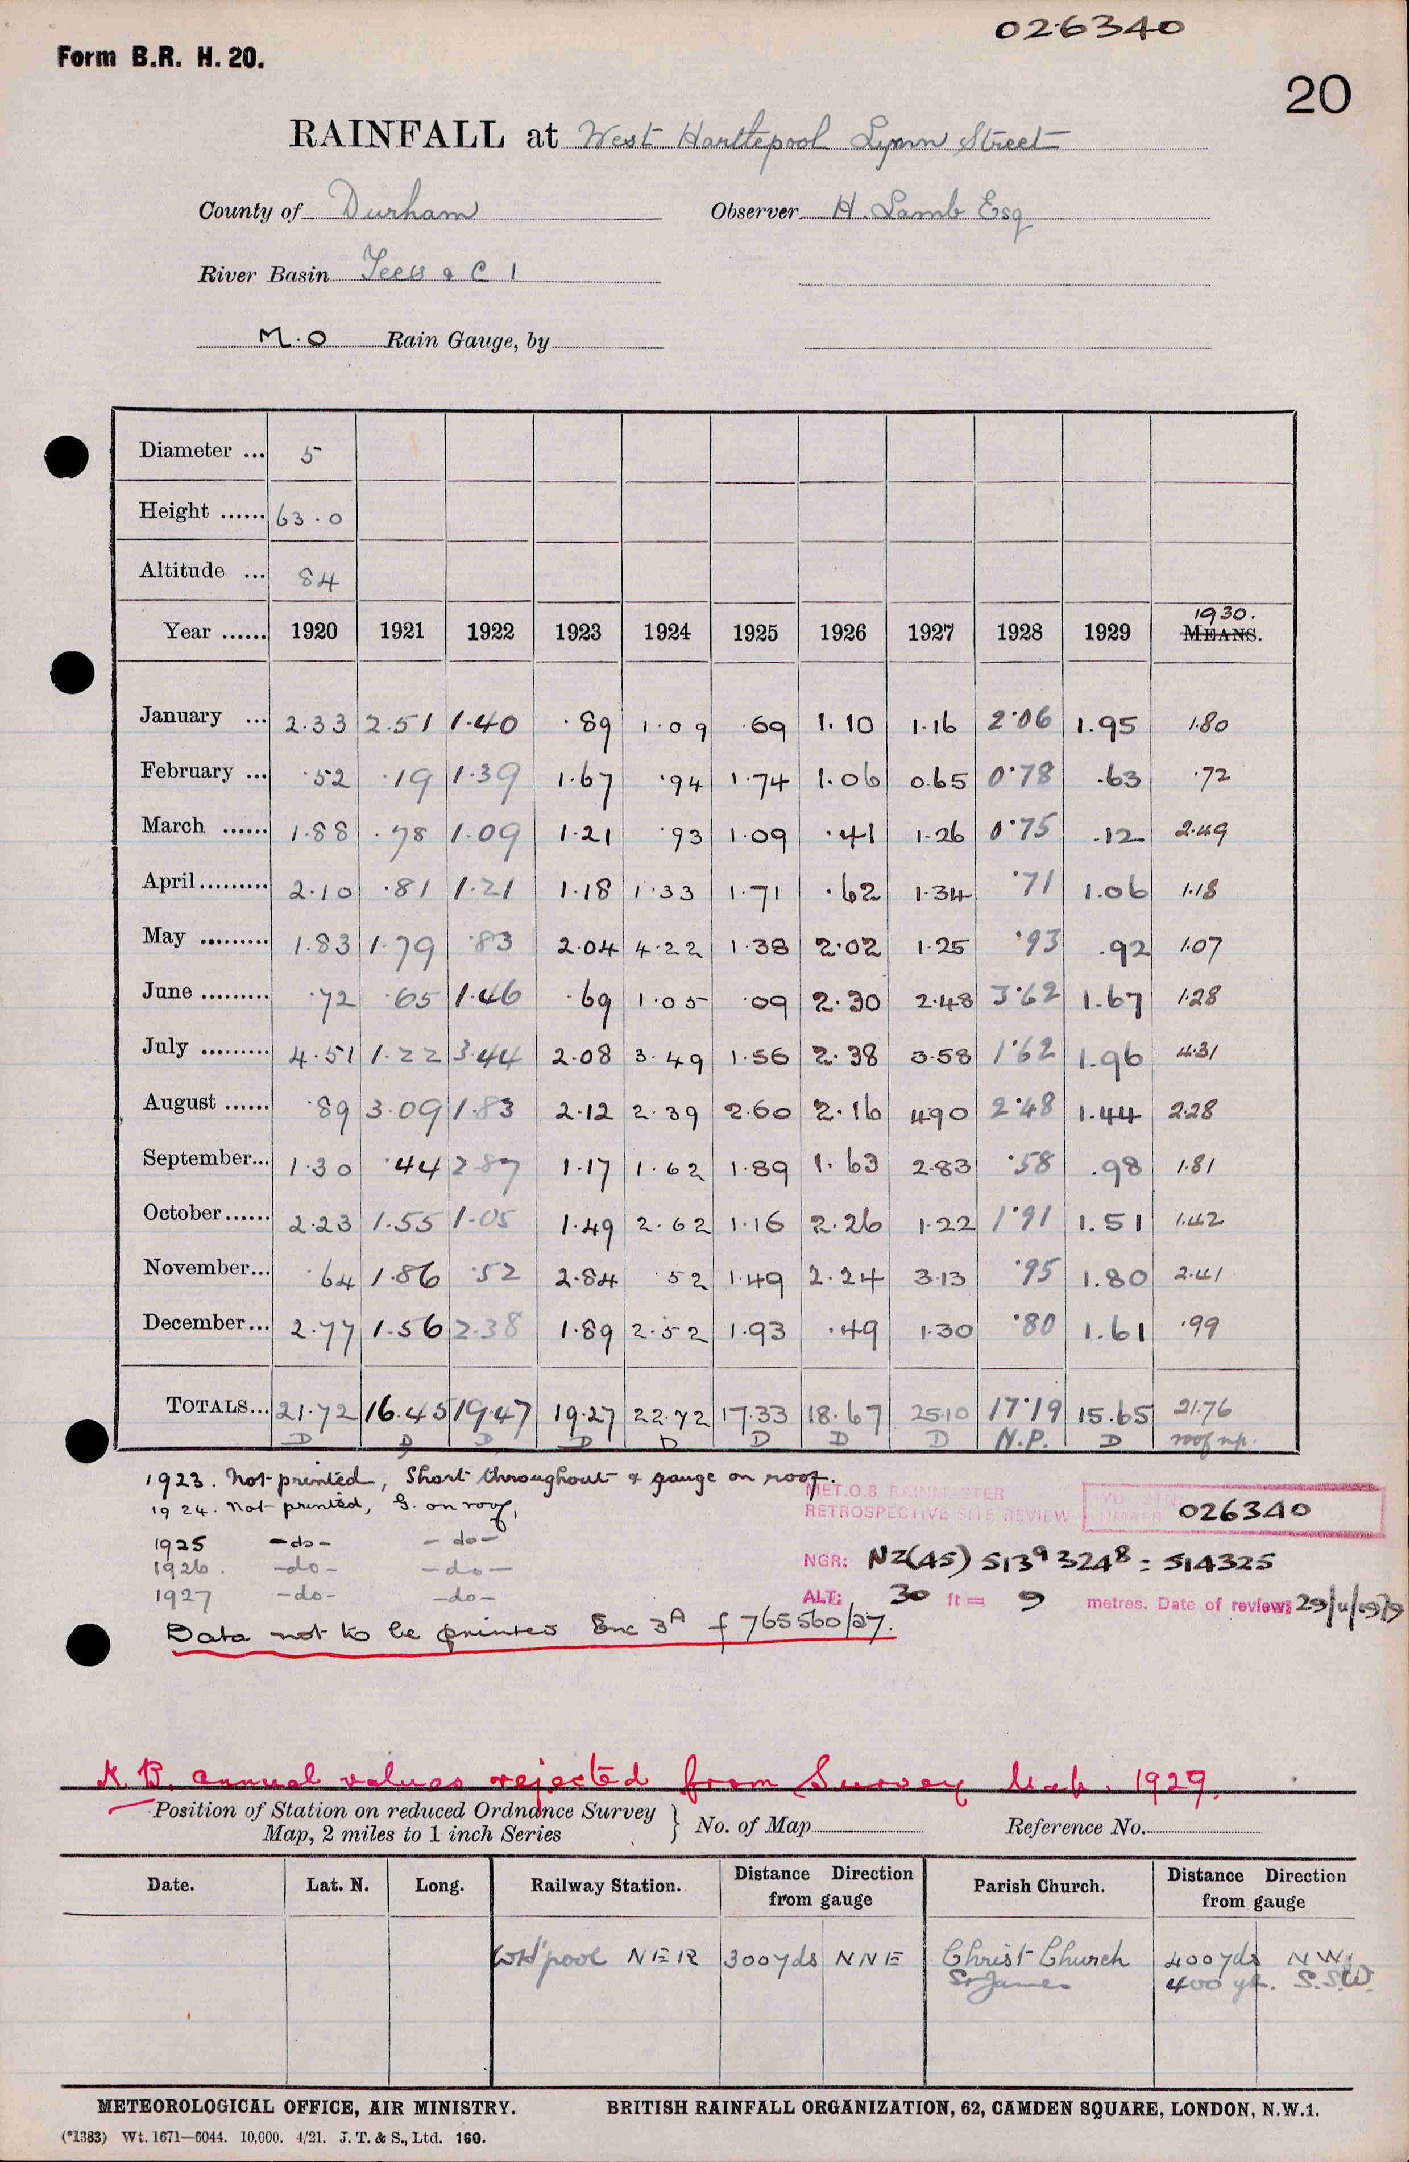 026340
Form B.R. H. 20.
20
RAINFALL at West Hartlepool Lynn Street
County of Durham Observer H. Lamb Esq
River Basin Tees & C 1
M.O Rain Gauge, by
Diameter ... 5
Height ...... 63.0
Altitude ... 84
Year ...... 1920 1921 1922 1923 1924 1925 1926 1927 1928 1929 1930. MEANS.
January ... 2.33 2.51 1.40 .89 1.09 .69 1.10 1.16 2.06 1.95 1.80
February ... .52 .19 1.39 1.67 .94 1.74 1.06 0.65 0.78 .63 .72
March ...... 1.88 .78 1.09 1.21 .93 1.09 .41 1.26 0.75 .12 2.49
April ......... 2.10 .81 1.21 1.18 1.33 1.71 .62 1.34 .71 1.06 1.18
May ......... 1.83 1.79 .83 2.04 4.22 1.38 2.02 1.25 .93 .92 1.07
June ......... .72 .65 1.46 .69 1.05 .09 2.30 2.48 3.62 1.67 1.28
July ......... 4.51 1.22 3.44 2.08 3.49 1.56 2.38 3.58 1.62 1.96 4.31
August ...... .89 3.09 1.83 2.12 2.39 2.60 2.16 4.90 2.48 1.44 2.28
September... 1.30 .44 2.87 1.17 1.62 1.89 1.63 2.83 .58 .98 1.81
October ...... 2.23 1.55 1.05 1.49 2.62 1.16 2.26 1.22 1.91 1.51 1.42
November... .64 1.86 .52 2.84 .52 1.49 2.24 3.13 .95 1.80 2.41
December ... 2.77 1.56 2.38 1.89 2.52 1.93 .49 1.30 .80 1.61 .99
TOTALS... 21.72 16.45 19.47 19.27 22.72 17.33 18.67 25.10 17.19 15.65 21.76
D D D D D D D D N.P. D roof n.p.
1923. Not printed, Short throughout & gauge on roof.
1924. Not printed, G. on roof,
1925 -do- -do-
1926. -do- -do-
1927 -do- -do-
Data not to be printed Enc 3A f 765560/27.
MET.O.8 RAINMASTER
RETROSPECTIVE SITE REVIEW
NUMBER 026340
NGR: NZ(45) 5139 3248 = 514325
ALT: 30 ft = 9 metres. Date of review: 29/11/1979
N.B. annual values rejected from Survey Feb. 1929.
Position of Station on reduced Ordnance Survey Map, 2 miles to 1 inch Series } No. of Map Reference No.
Date. Lat. N. Long. Railway Station. Distance Direction from gauge Parish Church. Distance Direction from gauge
W H'pool NER 300 yds NNE Christ Church 400 yds NW
St James 400 yds. S.S.W.
METEOROLOGICAL OFFICE, AIR MINISTRY. BRITISH RAINFALL ORGANIZATION, 62, CAMDEN SQUARE, LONDON, N.W.1.
(*1383) Wt. 1671—6044. 10,000. 4/21. J. T. & S., Ltd. 160.